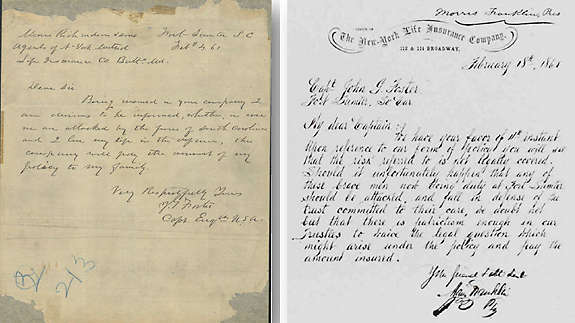 Fort Sumter S.C
Feb 4, 61
Agents of N. York
Life Insurance Co
Dear Sir
Being insured in your company I
am anxious to be informed, whether in case
we are attacked by the forces of South Carolina
and I lose my life in the defence, the
company will pay the amount of my
policy to my family.
Very Respectfully Yours
J G Foster
Capt Engrs U.S.A.
2/3
Morris Franklin, Pres
OFFICE OF
The New-York Life Insurance Company,
112 & 114 BROADWAY,
February 13th, 1861
Capt. John G. Foster
Fort Sumter, So. Car
My dear Captain :-
We have your favor of 4th instant
Upon reference to our form of Policy you will see
that the risk referred to is not legally covered.
Should it unfortunately happen that any of
those brave men now doing duty at Fort Sumter
should be attacked, and fall in defense of the
trust committed to their care, we doubt not
but that there is patriotism enough in our
Trustees to waive the legal question which
might arise under the policy and pay the
amount insured.
Morris Franklin